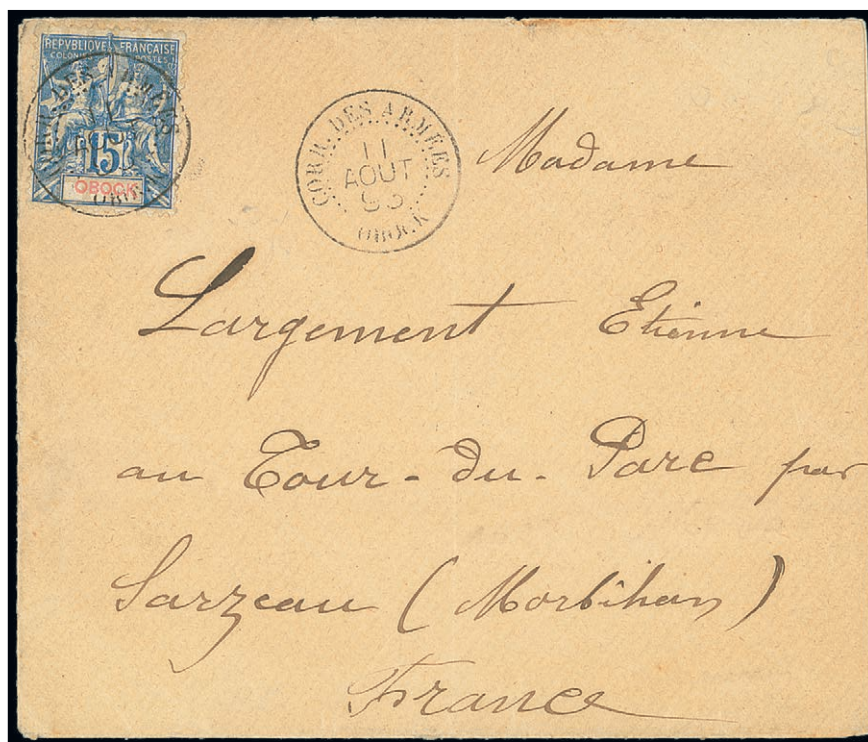 REPVBLIQVE FRANÇAISE
COLONIES POSTES
15
OBOCK
CORR. DES ARMÉES
OBOCK
CORR. DES ARMÉES
11
AOUT
OBOCK
Madame
Largement Etienne
au Tour-du-Parc par
Sarzeau (Morbihan)
France